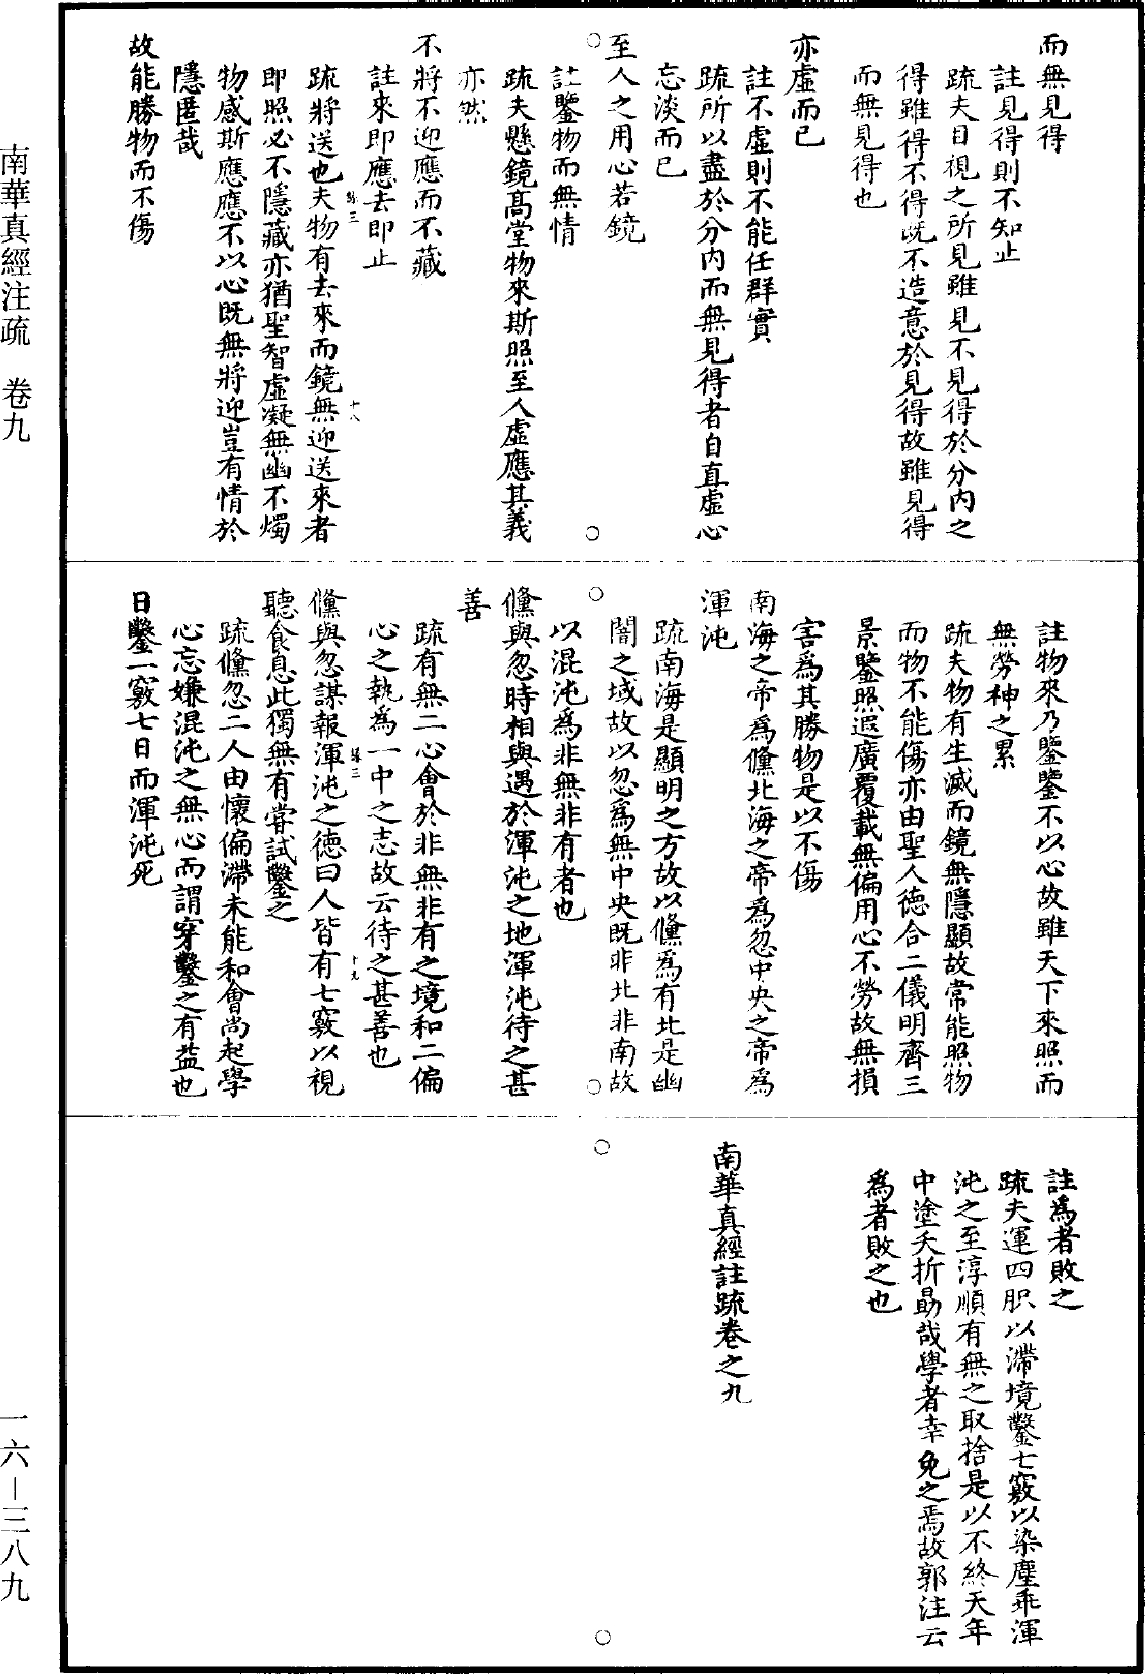 而無見得
註見得則不知止
疏夫目視之所見雖見不見得於分内之
得雖得不得既不造意於見得故雖見得
而無見得也
亦虛而已
註不虛則不能任群實
疏所以盡於分内而無見得者自直虛心
忘淡而已
至人之用心若鏡
註鑒物而無情
疏夫懸鏡高堂物來斯照至人虛應其義
亦然
不將不迎應而不藏
註來即應去即止
疏將送也夫物有去來而鏡無迎送來者
即照必不隱藏亦猶聖智虛凝無幽不燭
物感斯應應不以心既無將迎豈有情於
隱匿哉
故能勝物而不傷
註物來乃鑒鑒不以心故雖天下來照而
無勞神之累
疏夫物有生滅而鏡無隱顯故常能照物
而物不能傷亦由聖人德合二儀明齊三
景鑒照遐廣覆載無偏用心不勞故無損
害爲其勝物是以不傷
南海之帝爲儵北海之帝爲忽中央之帝爲
渾沌
疏南海是顯明之方故以儵爲有北是幽
闇之域故以忽爲無中央既非北非南故
以混沌爲非無非有者也
儵與忽時相與遇於渾沌之地渾沌待之甚
善
疏有無二心會於非無非有之境和二偏
心之執爲一中之志故云待之甚善也
儵與忽謀報渾沌之德曰人皆有七竅以視
聽食息此獨無有嘗試鑿之
疏儵忽二人由懷偏滯未能和會尚起學
心忘嫌混沌之無心而謂穿鑿之有益也
日鑿一竅七日而渾沌死
註爲者敗之
疏夫運四肢以滯境鑿七竅以染塵乖渾
沌之至淳順有無之取捨是以不終天年
中塗夭折勗哉學者幸免之焉故郭注云
爲者敗之也
南華真經註疏卷之九
南華真經注疏 卷九
一六—三八九